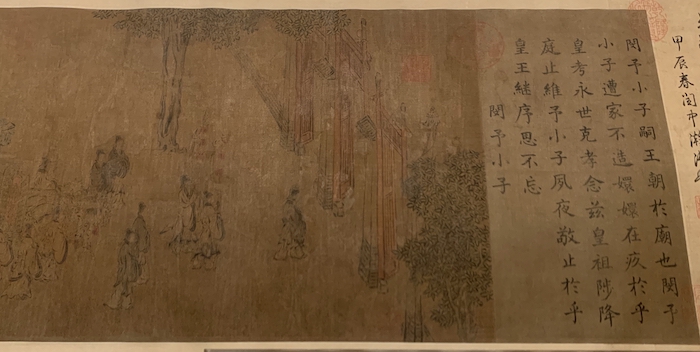 甲辰春
閔予小子嗣王朝於廟也閔予
小子遭家不造嬛嬛在疚於乎
皇考永世克孝念茲皇祖陟降
庭止維予小子夙夜敬止於乎
皇王繼序思不忘
閔予小子